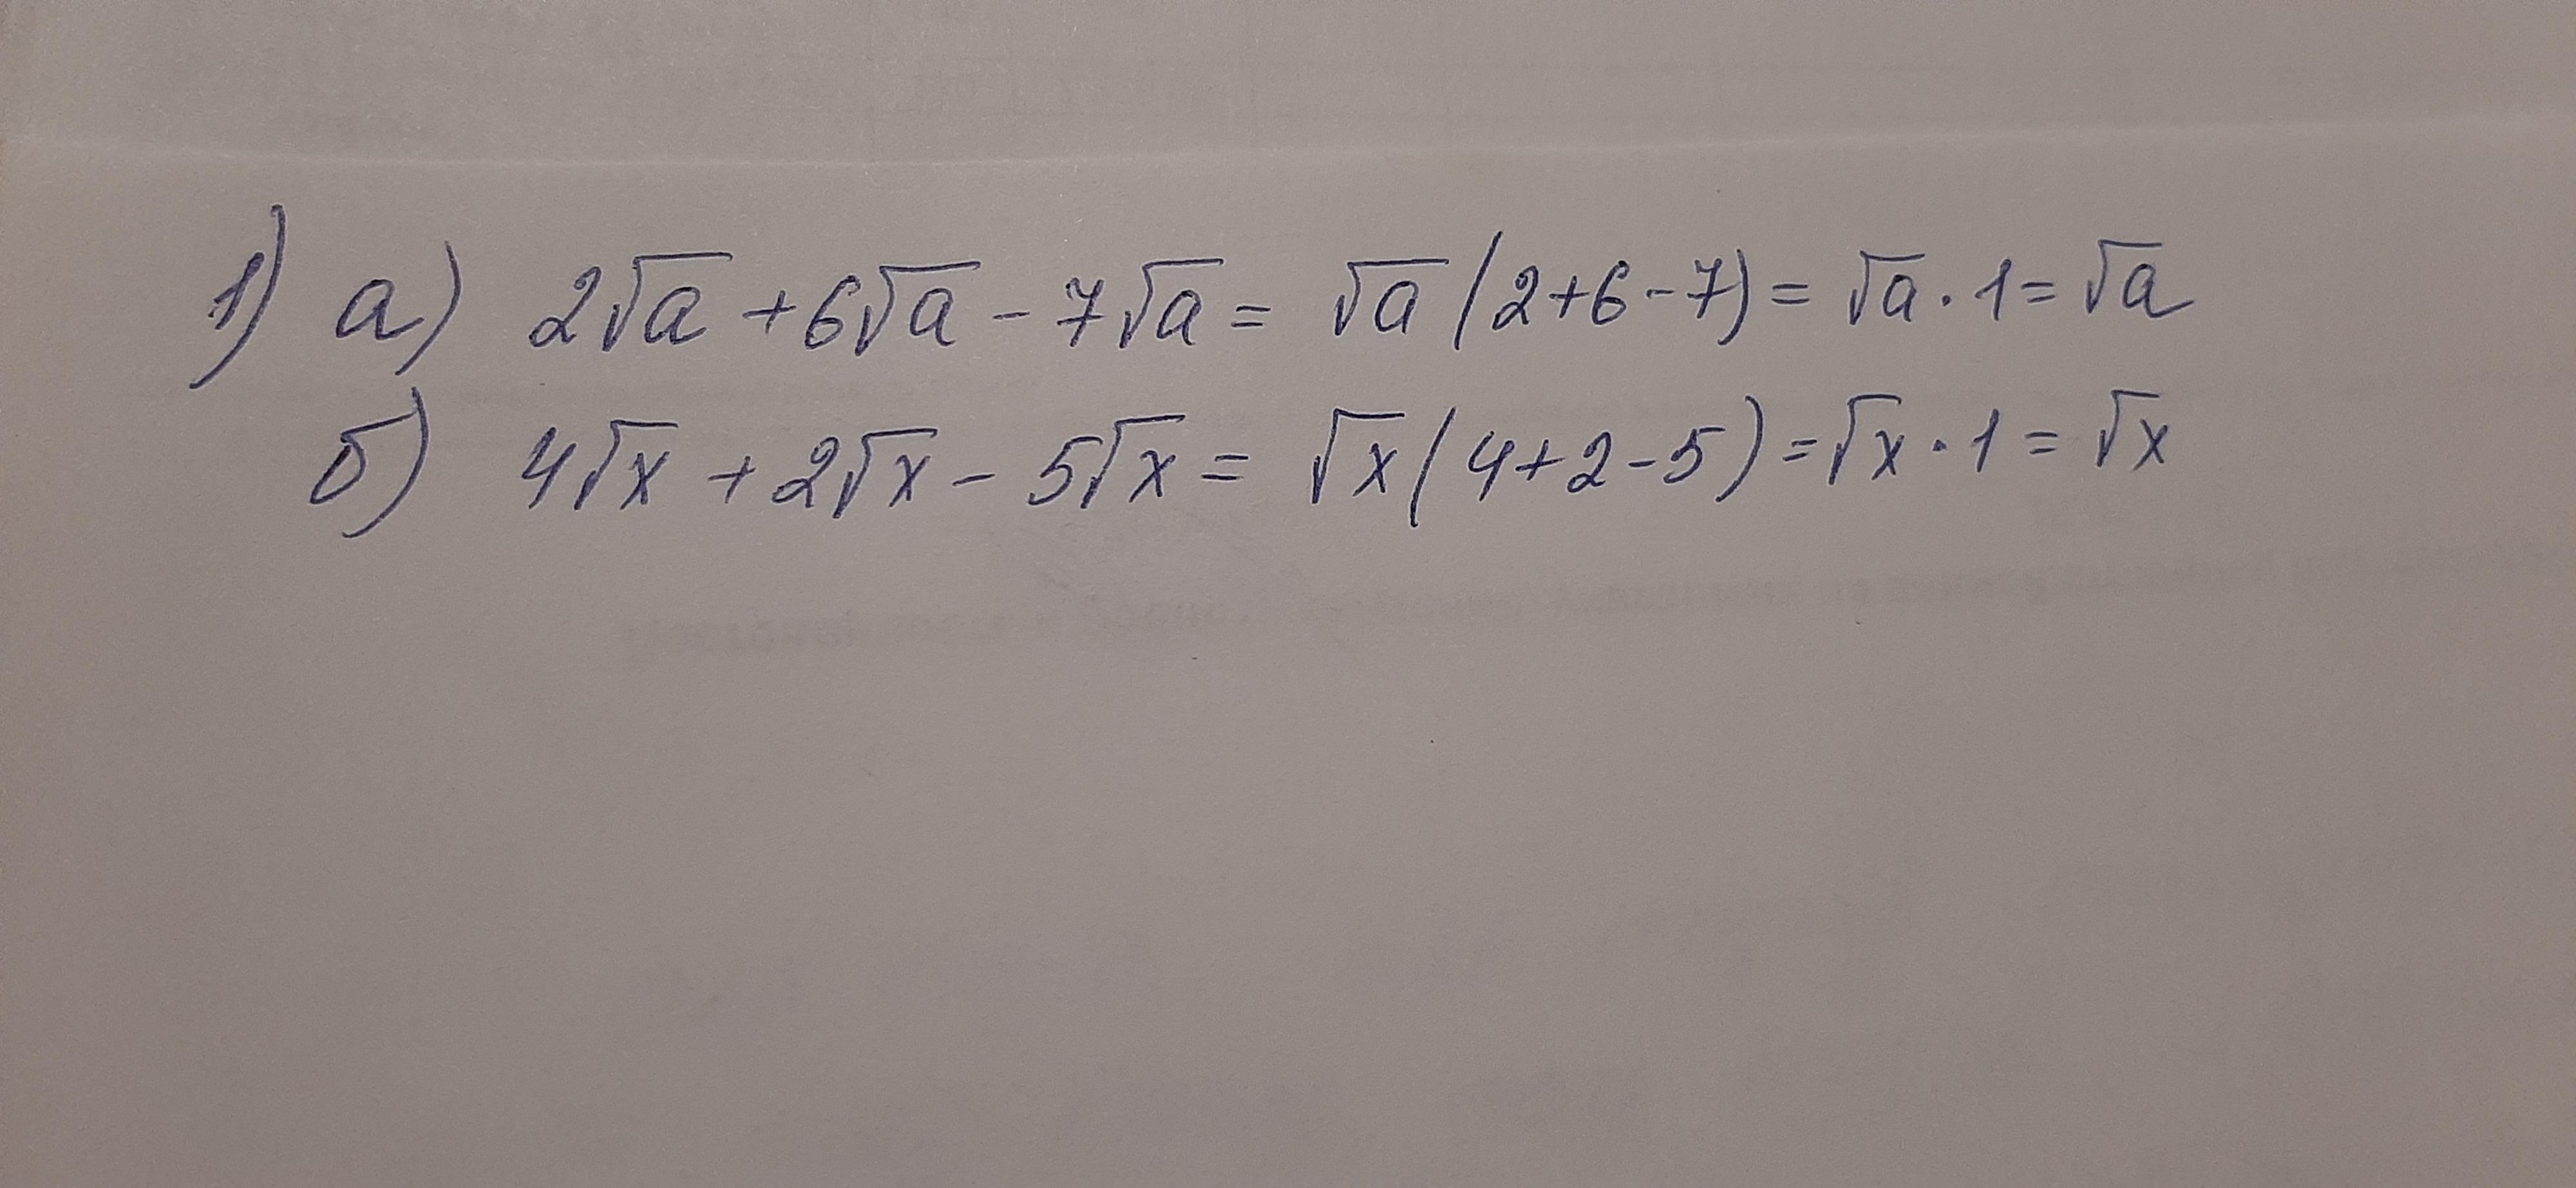 1) а) 2√a + 6√a - 7√a = √a (2+6-7) = √a · 1 = √a
б) 4√x + 2√x - 5√x = √x (4+2-5) = √x · 1 = √x